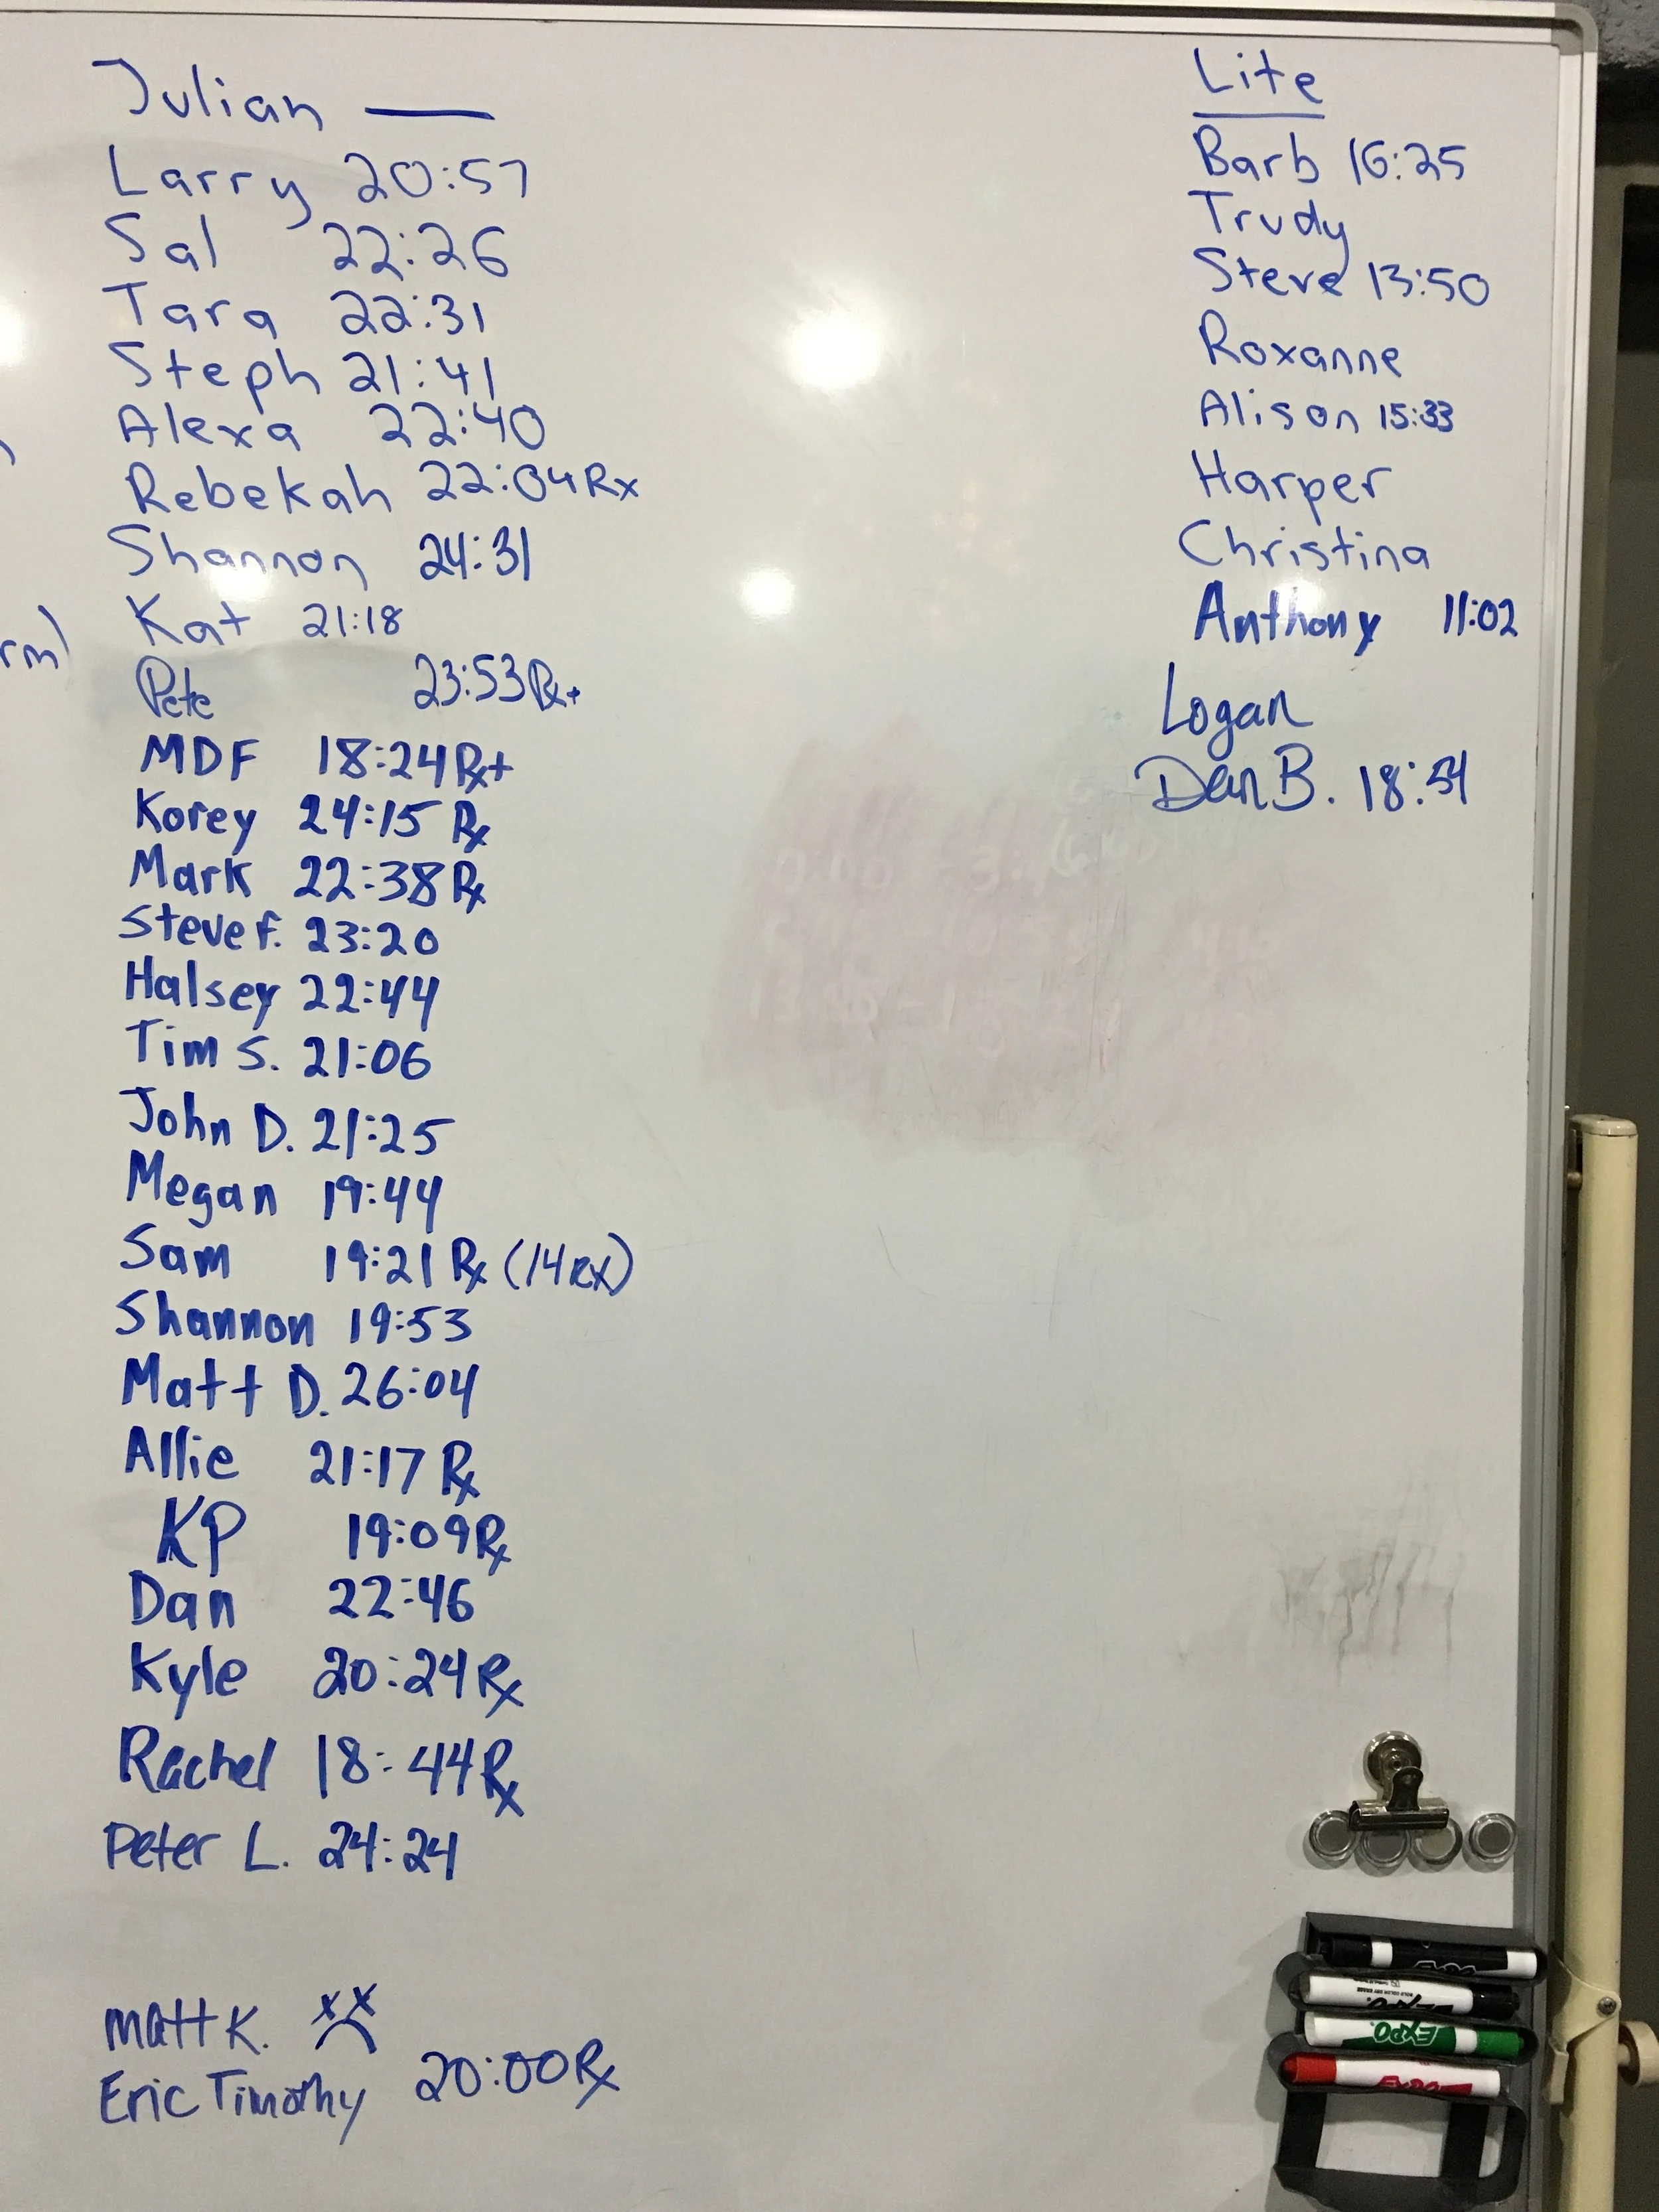 Julian —
Larry 20:57
Sal 22:26
Tara 22:31
Steph 21:41
Alexa 22:40
Rebekah 22:04 Rx
Shannon 24:31
Kat 21:18
Pete 23:53 Rx+
MDF 18:24 Rx+
Korey 24:15 Rx
Mark 22:38 Rx
Steve F. 23:20
Halsey 22:44
Tim S. 21:06
John D. 21:25
Megan 19:44
Sam 19:21 Rx (14 RX)
Shannon 19:53
Matt D. 26:04
Allie 21:17 Rx
KP 19:09 Rx
Dan 22:46
Kyle 20:24 Rx
Rachel 18:44 Rx
Peter L. 24:24
Matt K. x x
Eric Timothy 20:00 Rx
rm)
Lite
Barb 16:25
Trudy
Steve 13:50
Roxanne
Alison 15:33
Harper
Christina
Anthony 11:02
Logan
Dan B. 18:54
EXPO
EXPO
EXPO
EXPO